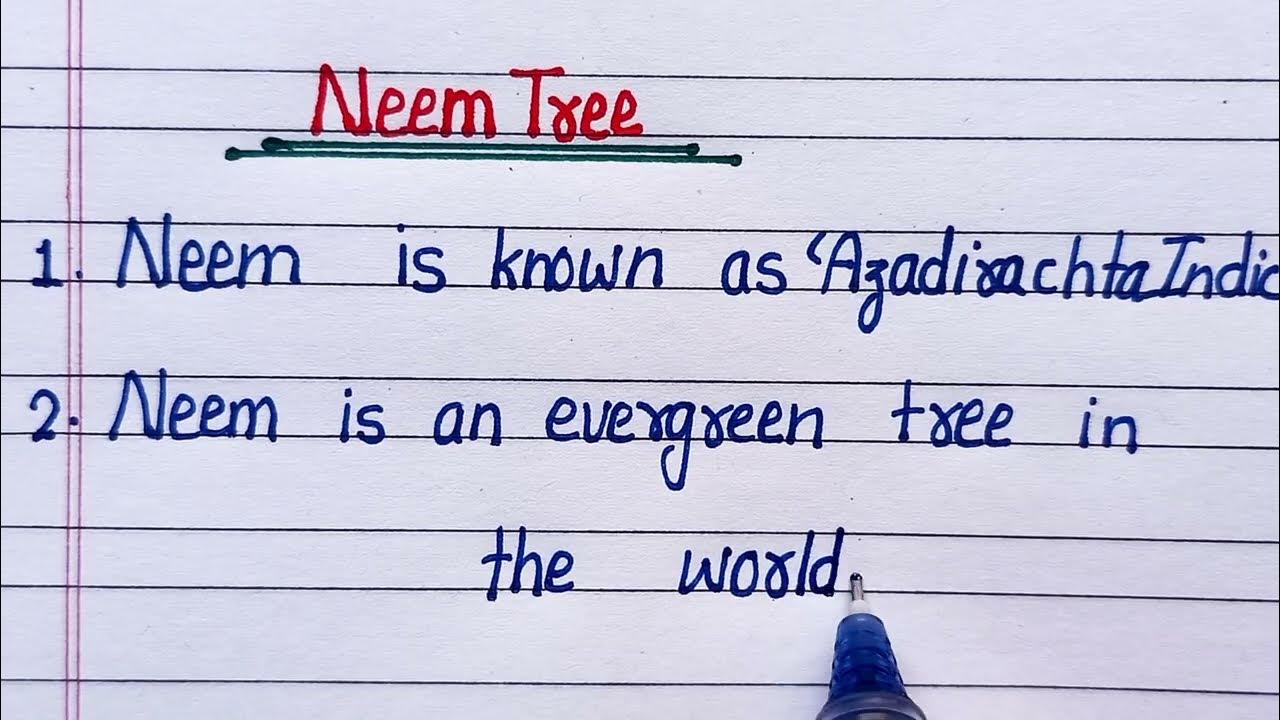 Neem Tree
1. Neem is known as 'Azadirachta Indic
2. Neem is an evergreen tree in
the world